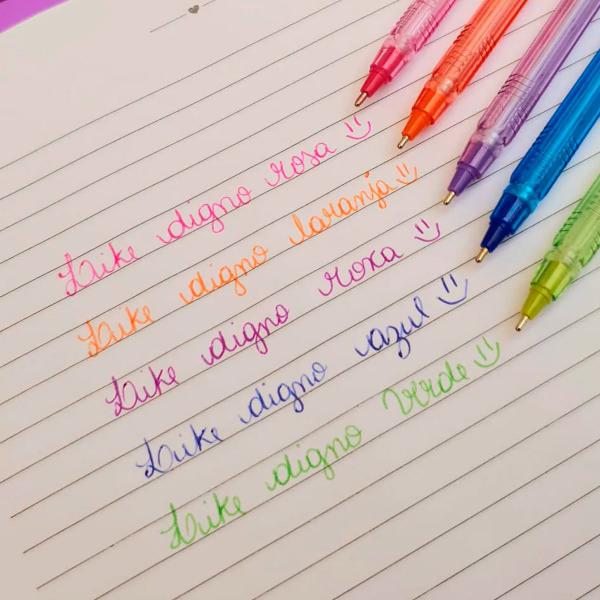 Like digno rosa =)
Like digno laranja =)
Like digno roxa =)
Like digno azul =)
Like digno verde =)